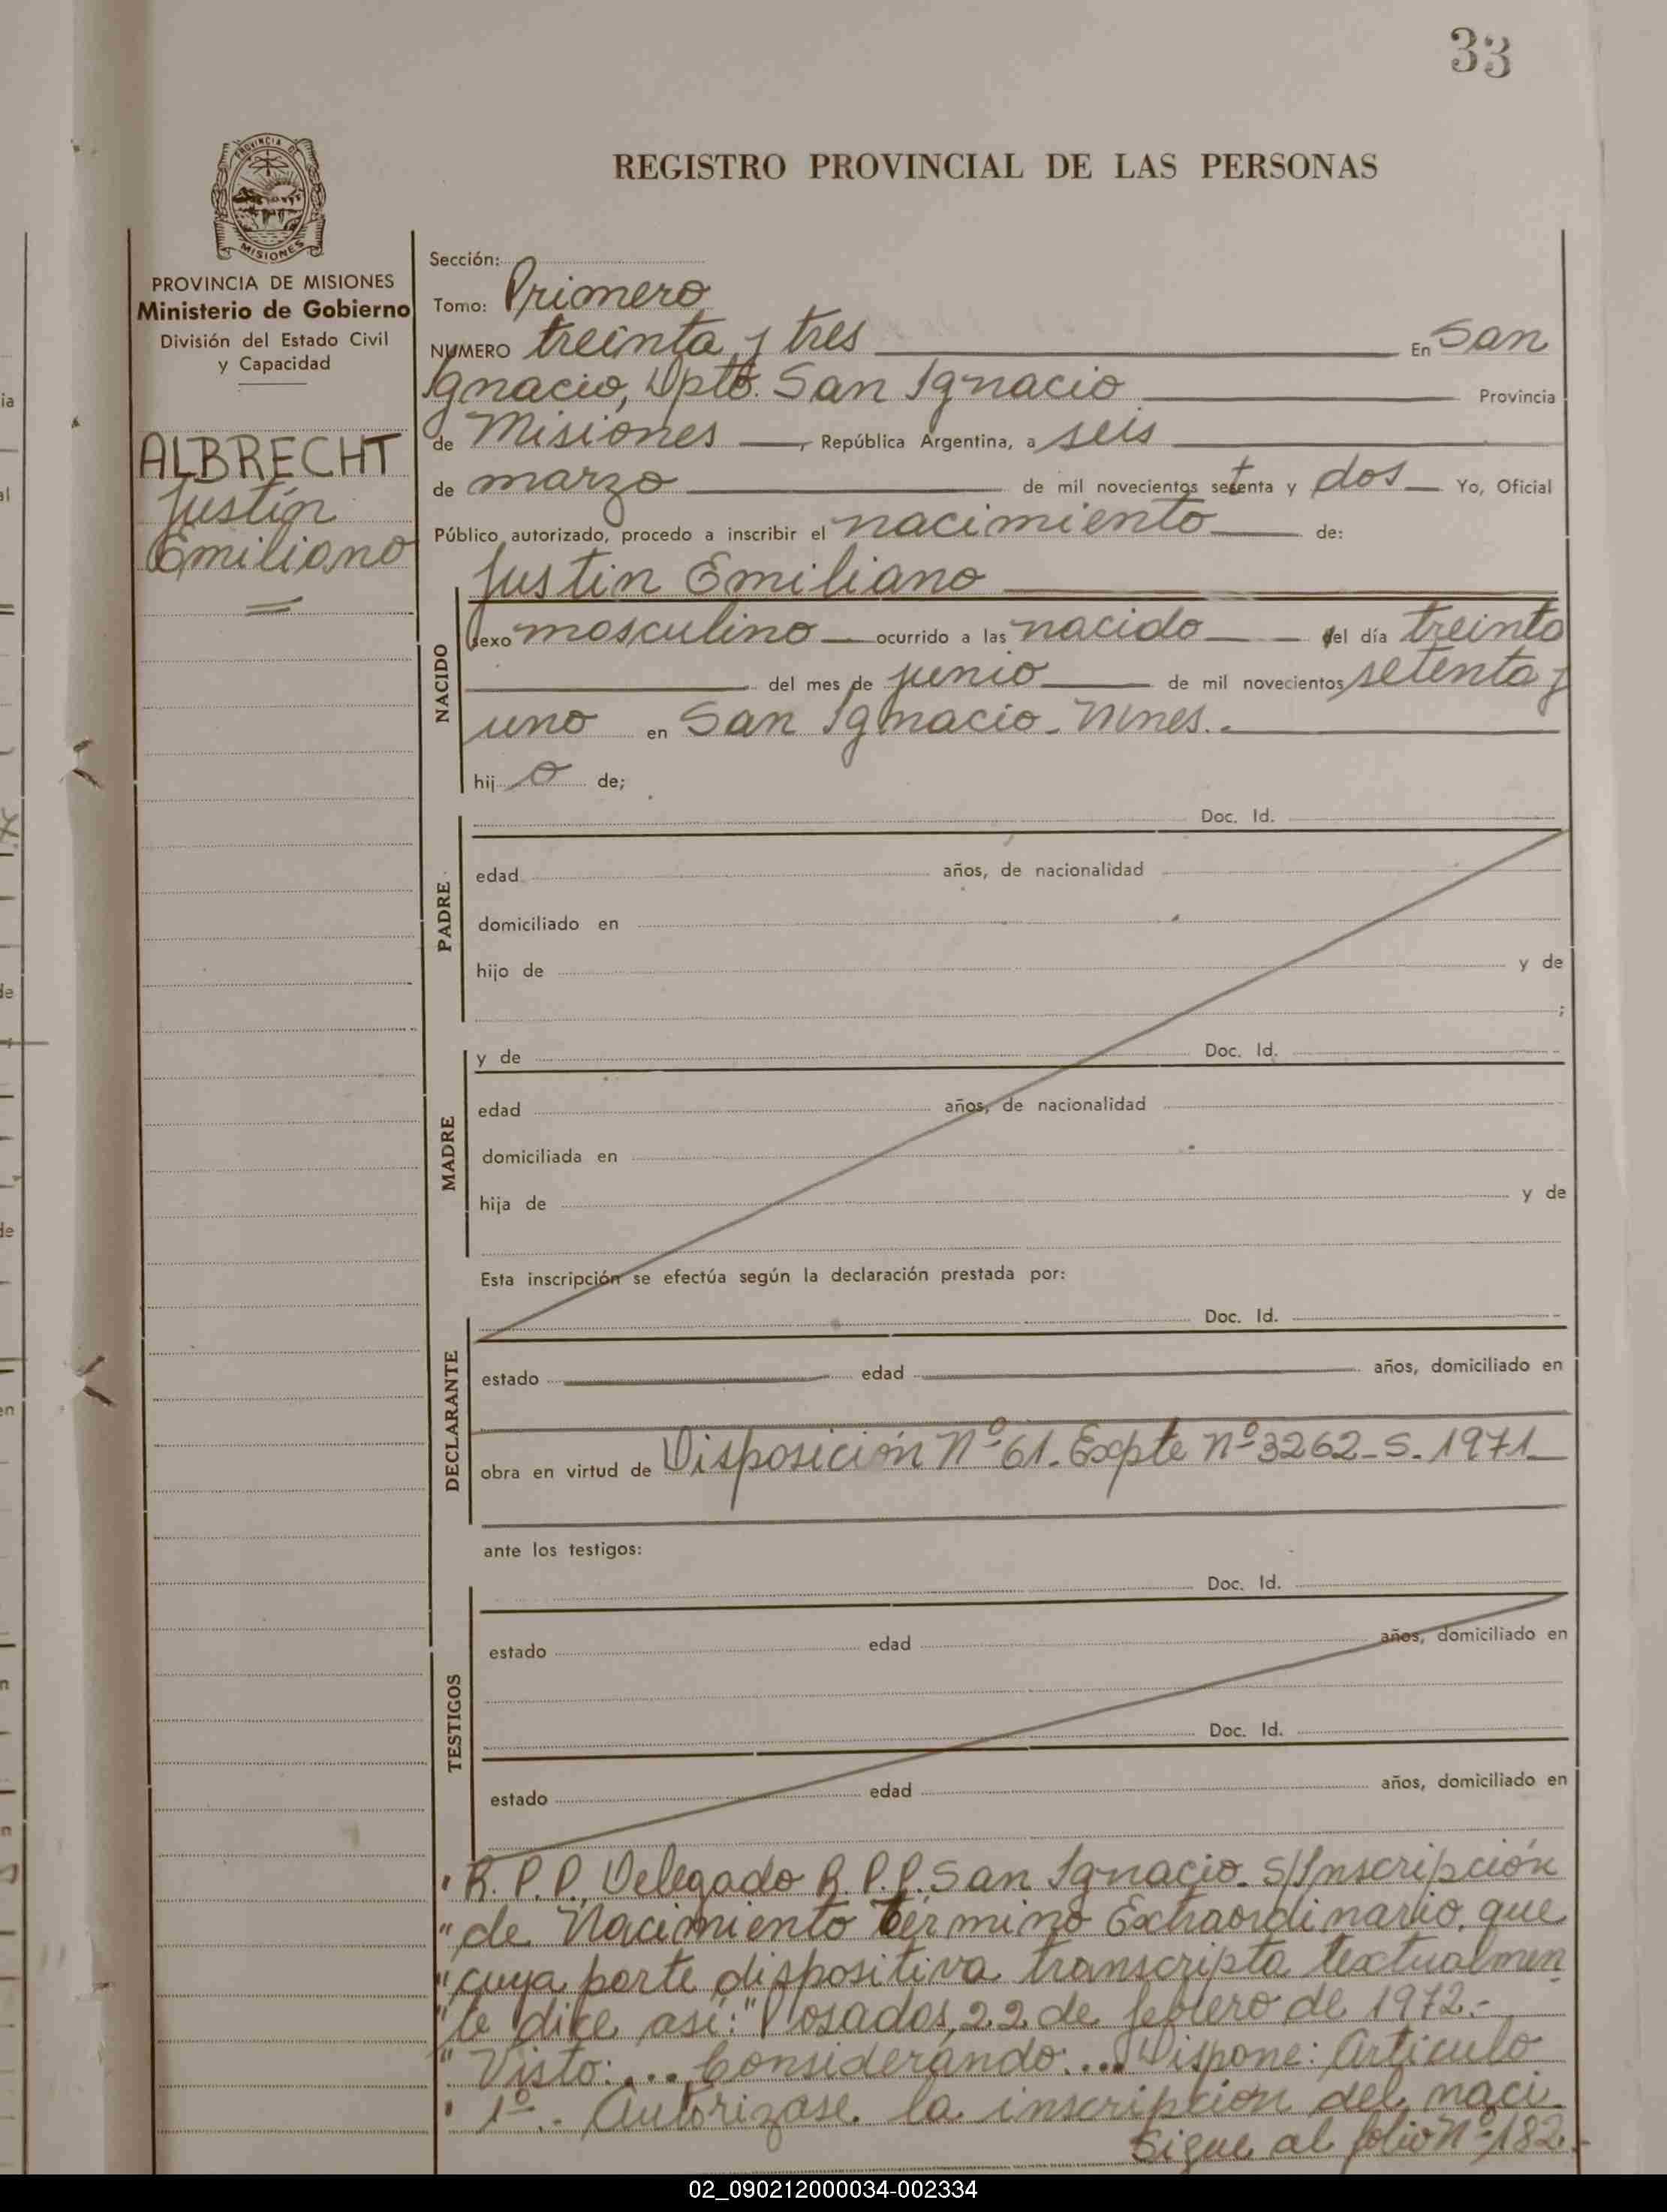 33
PROVINCIA DE
MISIONES
REGISTRO PROVINCIAL DE LAS PERSONAS
PROVINCIA DE MISIONES
Ministerio de Gobierno
División del Estado Civil
y Capacidad
ALBRECHT
Justin
Emiliano
Sección:
Tomo: Primero
NUMERO treinta y tres En San
Ignacio, Dpto. San Ignacio Provincia
de Misiones, República Argentina, a seis
de marzo de mil novecientos setenta y dos Yo, Oficial
Público autorizado, procedo a inscribir el nacimiento de:
Justin Emiliano
NACIDO
sexo masculino ocurrido a las nacido del día treinta
del mes de junio de mil novecientos setenta y
uno en San Ignacio - Mnes.
hij o de;
PADRE
Doc. Id.
edad años, de nacionalidad
domiciliado en
hijo de y de
;
MADRE
y de Doc. Id.
edad años, de nacionalidad
domiciliada en
hija de y de
Esta inscripción se efectúa según la declaración prestada por:
DECLARANTE
Doc. Id.
estado edad años, domiciliado en
obra en virtud de Disposición Nº 61. Expte Nº 3262-S-1971
ante los testigos:
TESTIGOS
Doc. Id.
estado edad años, domiciliado en
Doc. Id.
estado edad años, domiciliado en
"R.P.P. Delegado R.P.P. San Ignacio. S/Inscripción
"de Nacimiento Término Extraordinario, que
"cuya parte dispositiva transcripta textualmen
"te dice así: "Posadas, 22 de febrero de 1972.-
"Visto:... Considerando:... Dispone: Artículo
"1º.- Autorízase la inscripción del naci
Sigue al folio Nº 182.-
02_090212000034-002334